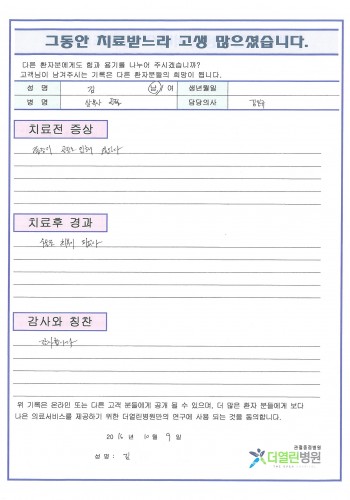 그동안 치료받느라 고생 많으셨습니다.
다른 환자분에게도 힘과 용기를 나누어 주시겠습니까?
고객님이 남겨주시는 기록은 다른 환자분들의 희망이 됩니다.
성 명 김 남 / 여 생년월일
병 명 담당의사
치료전 증상
치료후 경과
감사와 칭찬
감사합니다
위 기록은 온라인 또는 다른 고객 분들에게 공개 될 수 있으며, 더 많은 환자 분들에게 보다
나은 의료서비스를 제공하기 위한 더열린병원만의 연구에 사용 되는 것을 동의합니다.
2016 년 10 월 9 일
성 명 : 김
관절중점병원
더열린병원